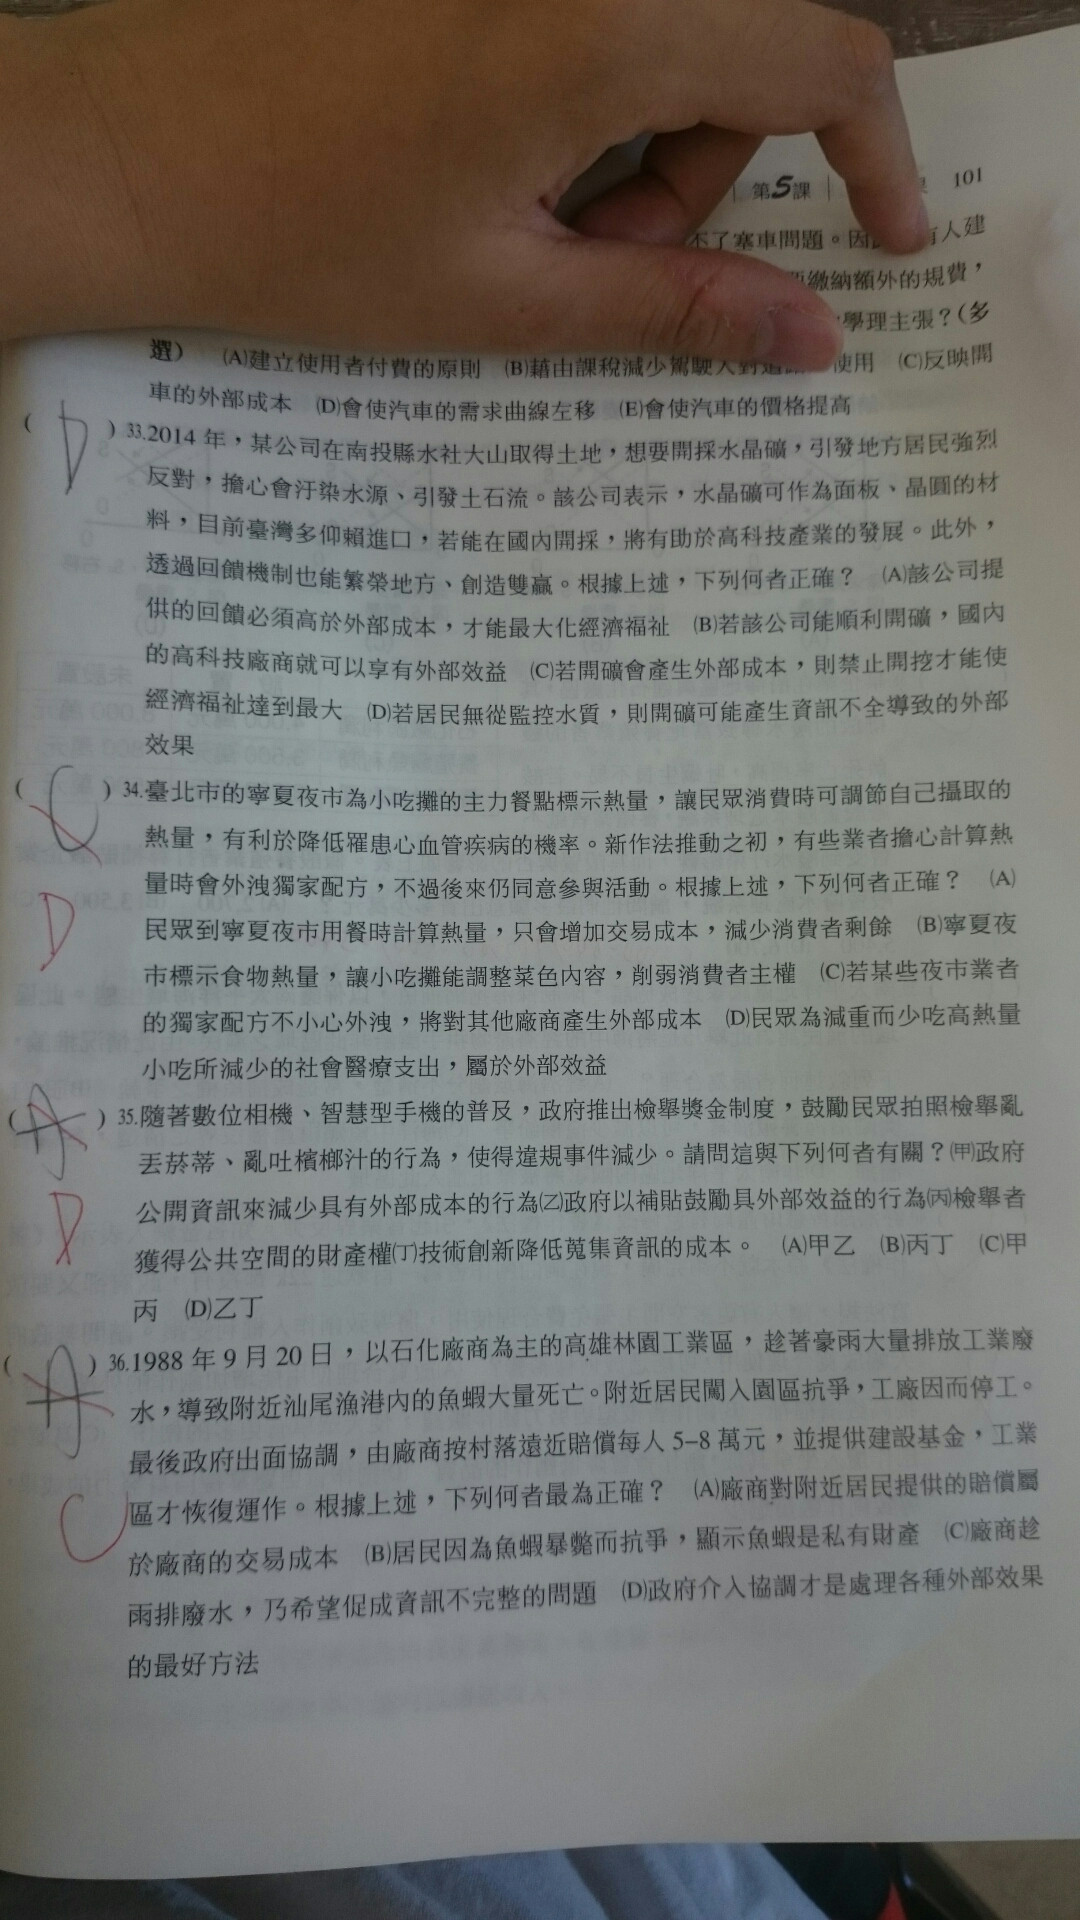 第5課 101
不了塞車問題。因 有人建
繳納額外的規費，
學理主張？(多
選) (A)建立使用者付費的原則 (B)藉由課稅減少駕駛人對道 使用 (C)反映開
車的外部成本 (D)會使汽車的需求曲線左移 (E)會使汽車的價格提高
( D )33.2014 年，某公司在南投縣水社大山取得土地，想要開採水晶礦，引發地方居民強烈
反對，擔心會汙染水源、引發土石流。該公司表示，水晶礦可作為面板、晶圓的材
料，目前臺灣多仰賴進口，若能在國內開採，將有助於高科技產業的發展。此外，
透過回饋機制也能繁榮地方、創造雙贏。根據上述，下列何者正確？ (A)該公司提
供的回饋必須高於外部成本，才能最大化經濟福祉 (B)若該公司能順利開礦，國內
的高科技廠商就可以享有外部效益 (C)若開礦會產生外部成本，則禁止開挖才能使
經濟福祉達到最大 (D)若居民無從監控水質，則開礦可能產生資訊不全導致的外部
效果
( C )34.臺北市的寧夏夜市為小吃攤的主力餐點標示熱量，讓民眾消費時可調節自己攝取的
熱量，有利於降低罹患心血管疾病的機率。新作法推動之初，有些業者擔心計算熱
量時會外洩獨家配方，不過後來仍同意參與活動。根據上述，下列何者正確？ (A)
D
民眾到寧夏夜市用餐時計算熱量，只會增加交易成本，減少消費者剩餘 (B)寧夏夜
市標示食物熱量，讓小吃攤能調整菜色內容，削弱消費者主權 (C)若某些夜市業者
的獨家配方不小心外洩，將對其他廠商產生外部成本 (D)民眾為減重而少吃高熱量
小吃所減少的社會醫療支出，屬於外部效益
( A )35.隨著數位相機、智慧型手機的普及，政府推出檢舉獎金制度，鼓勵民眾拍照檢舉亂
丟菸蒂、亂吐檳榔汁的行為，使得違規事件減少。請問這與下列何者有關？(甲)政府
D
公開資訊來減少具有外部成本的行為(乙)政府以補貼鼓勵具外部效益的行為(丙)檢舉者
獲得公共空間的財產權(丁)技術創新降低蒐集資訊的成本。 (A)甲乙 (B)丙丁 (C)甲
丙 (D)乙丁
( A )36.1988 年 9 月 20 日，以石化廠商為主的高雄林園工業區，趁著豪雨大量排放工業廢
水，導致附近汕尾漁港內的魚蝦大量死亡。附近居民闖入園區抗爭，工廠因而停工。
最後政府出面協調，由廠商按村落遠近賠償每人 5–8 萬元，並提供建設基金，工業
C
區才恢復運作。根據上述，下列何者最為正確？ (A)廠商對附近居民提供的賠償屬
於廠商的交易成本 (B)居民因為魚蝦暴斃而抗爭，顯示魚蝦是私有財產 (C)廠商趁
雨排廢水，乃希望促成資訊不完整的問題 (D)政府介入協調才是處理各種外部效果
的最好方法